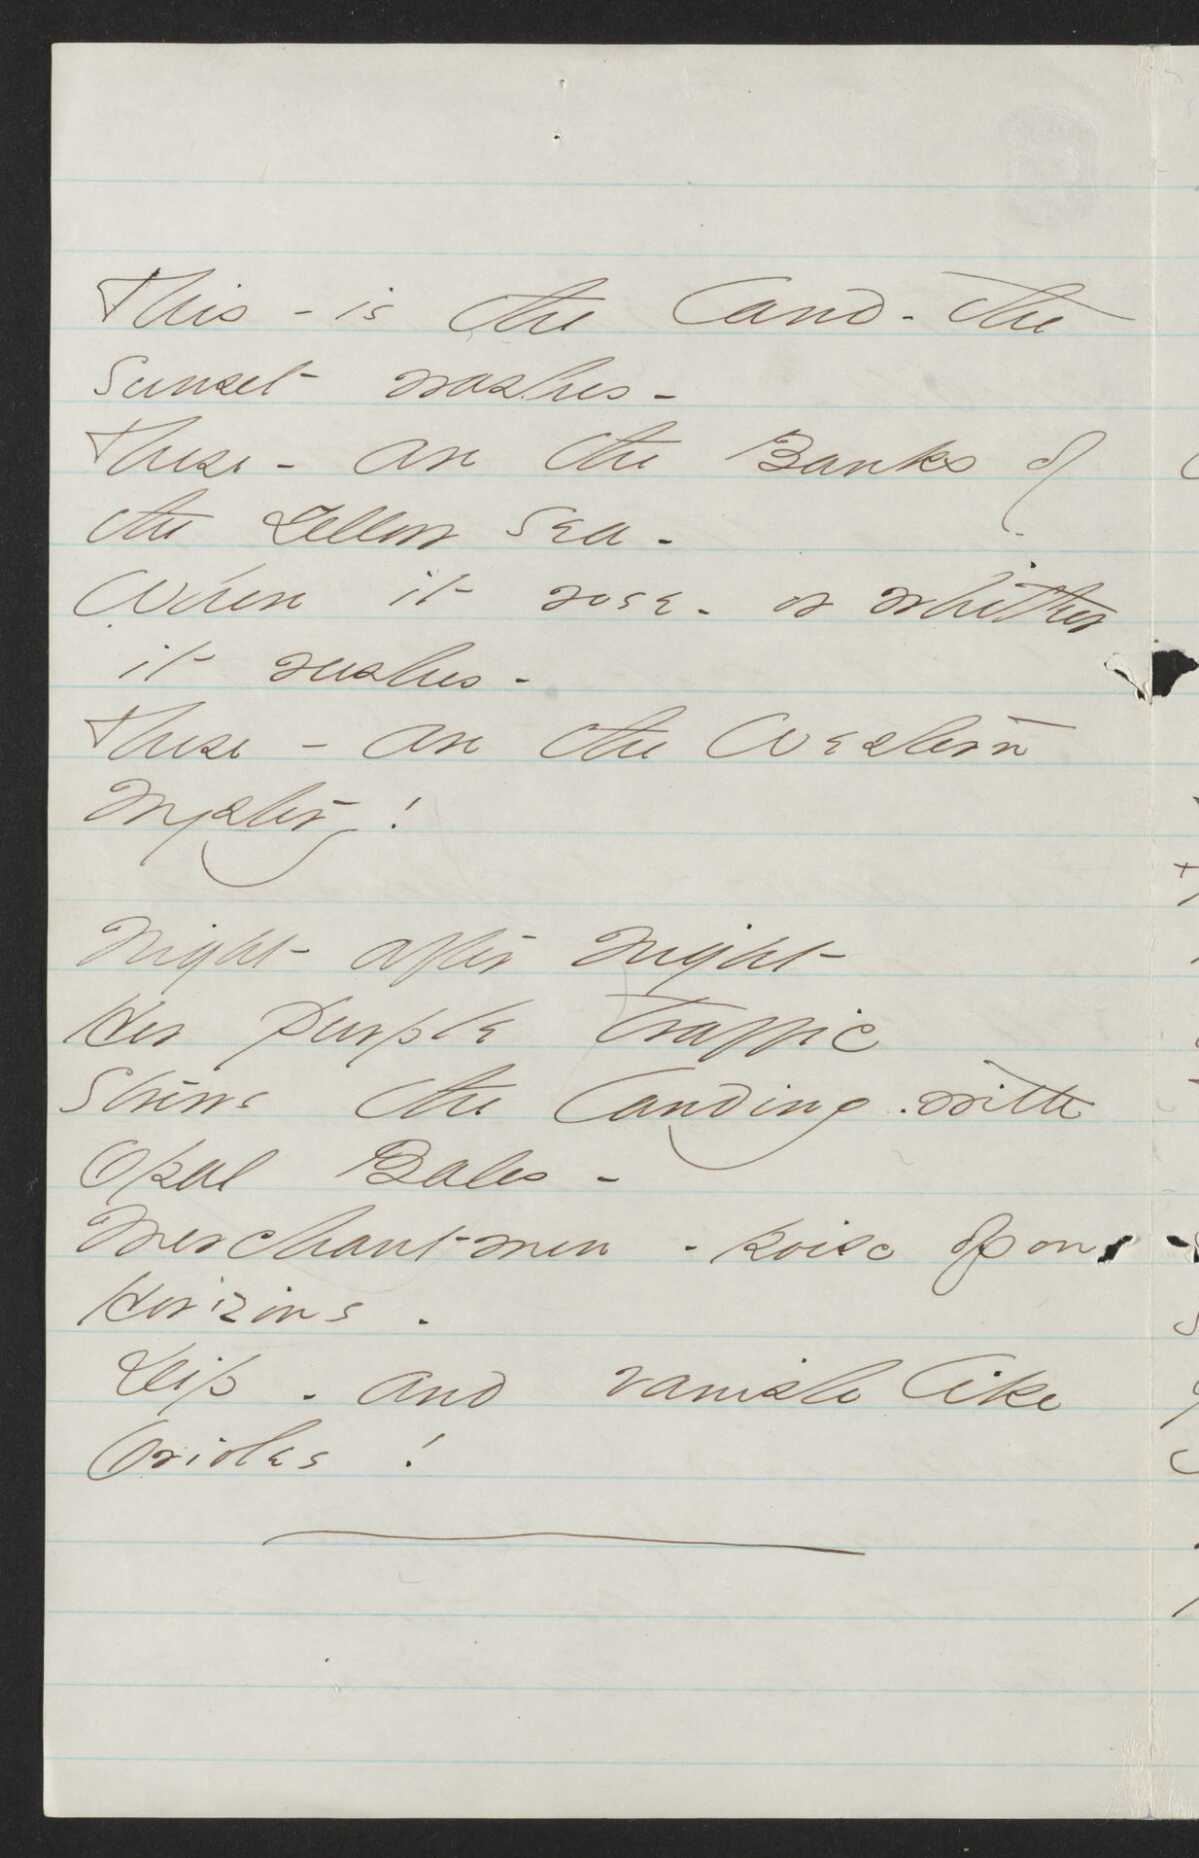 This - is the land - the
Sunset washes -
These - are the Banks of
the Yellow Sea -
Where it rose - or whither
it rushes -
These - are the Western
Mystery!
Night after Night
Her purple traffic
Strews the landing - with
Opal Bales -
Merchantmen - poise opon
Horizons -
Dip - and vanish like
Orioles!